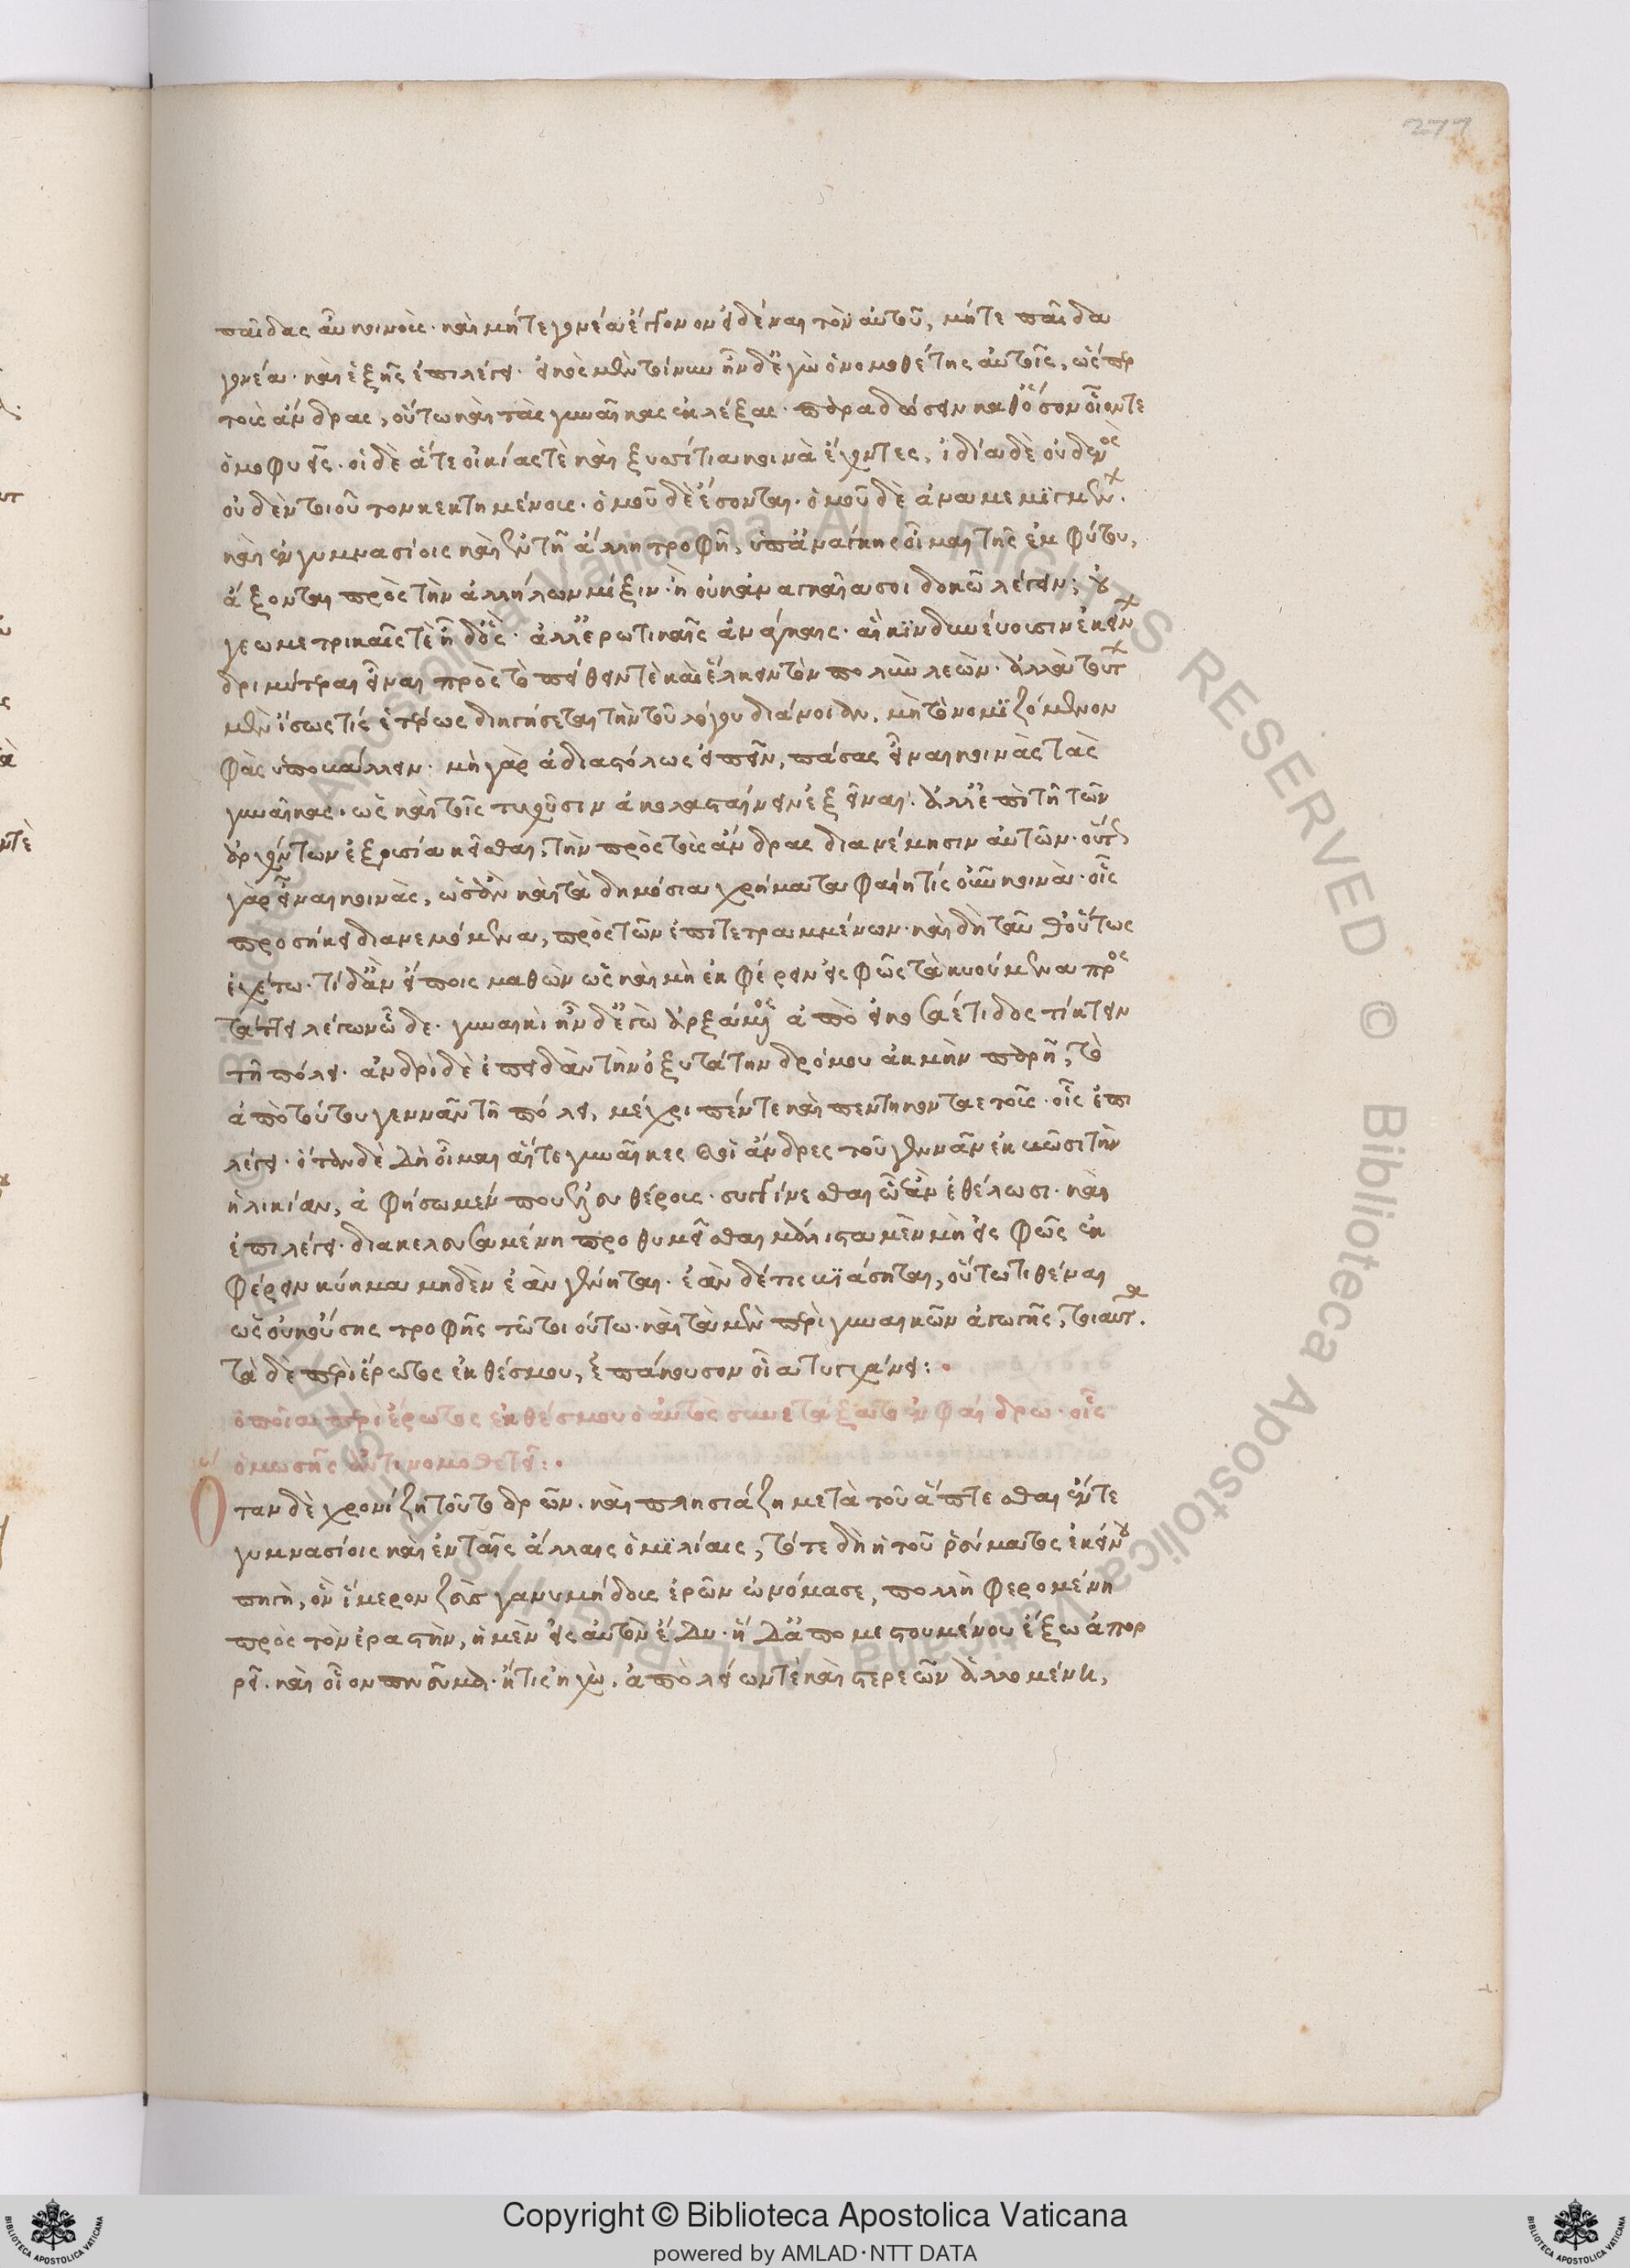 277
παῖδας αὖ κοινοὺς· καὶ μήτε γονέα ἔκγονον εἰδέναι τὸν αὐτοῦ, μήτε παῖδα
γονέα· καὶ ἑξῆς ἐπιλέγει· εἰκὸς μὲν τοίνυν ἦν δ' ἐγὼ ὁ νομοθέτης αὐτοῖς, ὥσπερ
τοὺς ἄνδρας, οὕτω καὶ τὰς γυναῖκας ἐκλέξας· παραδώσειν καθόσον οἷόντε
ὁμοφυεῖς· οἱ δὲ ἅτε οἰκίας τὲ καὶ ξυσσίτια κοινὰ ἔχοντες, ἰδία δὲ οὐδενὸς
οὐδὲν τοιοῦτον κεκτημένους· ὁμοῦ δὲ ἔσονται· ὁμοῦ δὲ ἀναμεμιγμένων·
καὶ ἐν γυμνασίοις καὶ ἐν τῇ ἄλλῃ τροφῇ, ὑπ' ἀνάγκης οἶμαι τῆς ἐμφύτου,
ἄξονται πρὸς τὴν ἀλλήλων μίξιν· ἢ οὐκ ἀναγκαῖά σοι δοκῶ λέγειν; οὐ
γεωμετρικαῖς τὲ ἦ δ' ὃς· ἀλλ' ἐρωτικαῖς ἀνάγκαις· αἳ κινδυνεύουσιν ἐκείνων
δριμύτεραι εἶναι πρὸς τὸ πείθειν τὲ καὶ ἕλκειν τὸν πολὺν λεὼν· ἀλλὰ ταῦτα
μὲν ἴσως τίς ἑτέρως διηγήσεται τὴν τοῦ λόγου διάνοιαν, μὴ τὸ νομιζόμενον
φὰς ὑποβάλλειν· μὴ γὰρ ἀδιαστόλως εἰπεῖν, πάσας εἶναι κοινὰς τὰς
γυναῖκας· ὡς καὶ τοῖς τυχοῦσιν ἀκολασταίνειν ἐξεῖναι· ἀλλ' ἐπὶ τῇ τῶν
ἀρχόντων ἐξουσία κεῖσθαι, τὴν πρὸς τοὺς ἄνδρας διανέμησιν αὐτῶν· οὕτω
γὰρ εἶναι κοινὰς, ὡσὰν καὶ τὰ δημόσια χρήματα φαίη τίς οὖν κοινὰ· οἷς
προσήκει διανεμόμενα, πρὸς τῶν ἐπιτετραμμένων· καὶ δὴ ταῦθ' οὕτως
ἐχέτω· τί δ' ἂν εἴποις μαθὼν ὡς καὶ μὴ ἐκφέρειν εἰς φῶς τὰ κυούμενα προς
τάττει λέγων ὧδε· γυναικὶ ἦν δ' ἐγὼ ἀρξαμένῃ ἀπὸ εἰκοσαέτιδος τίκτειν
τῇ πόλει· ἀνδρὶ δὲ ἐπειδὰν τὴν ὀξυτάτην δρόμου ἀκμὴν παρῇ, τὸ
ἀπὸ τούτου γεννᾶν τῇ πόλει, μέχρι πέντε καὶ πεντηκονταετοῖς· οἷς ἐπι
λέγει· ὅταν δὲ δὴ οἶμαι αἵτε γυναῖκες καὶ οἱ ἄνδρες τοῦ γεννᾶν ἐκβῶσι τὴν
ἡλικίαν, ἀφήσωμέν που ἐλευθέρους· συγγίνεσθαι ᾧ ἂν ἐθέλωσι· καὶ
ἐπιλέγει· διακελευσαμένη προθυμεῖσθαι μάλιστα μὲν μὴ εἰς φῶς ἐκ
φέρειν κύημα μηδὲν ἐὰν γένηται· ἐὰν δέ τις βιάσηται, οὕτω τιθέναι
ὡς οὐκ οὔσης τροφῆς τῷ τοιούτω· καὶ τὰ μὲν περὶ γυναικῶν ἀγωγῆς, τοιαῦτα.
τὰ δὲ περὶ ἔρωτος ἐκθέσμου, ἐπάκουσον οἷα τυγχάνει:
ὁποῖα περὶ ἔρωτος ἐκθέσμου ὁ αὐτὸς συνετάξατο ἐν φαίδρω· οἷς
ὁμωσῆς ἀντινομοθετεῖ:
Ὅταν δὲ χρονίζῃ τοῦτο δρῶν· καὶ πλησιάζῃ μετὰ τοῦ ἅπτεσθαι ἔν τε
γυμνασίοις καὶ ἐν ταῖς ἄλλαις ὁμιλίαις, τότε δὴ ἡ τοῦ ῥεύματος ἐκείνου
πηγὴ, ὃν ἵμερον ζεὺς γανυμήδους ἐρῶν ὠνόμασε, πολλὴ φερομένη
πρὸς τὸν ἐραστὴν, ἡ μὲν εἰς αὐτὸν ἔδυ· ἡ δ' ἀπομεστουμένου ἔξω ἀπορ
ρεῖ· καὶ οἷον πνεῦμα· ἤ τις ἠχὼ, ἀπὸ λείων τὲ καὶ στερεῶν ἁλλομένη,
Copyright © Biblioteca Apostolica Vaticana
powered by AMLAD·NTT DATA